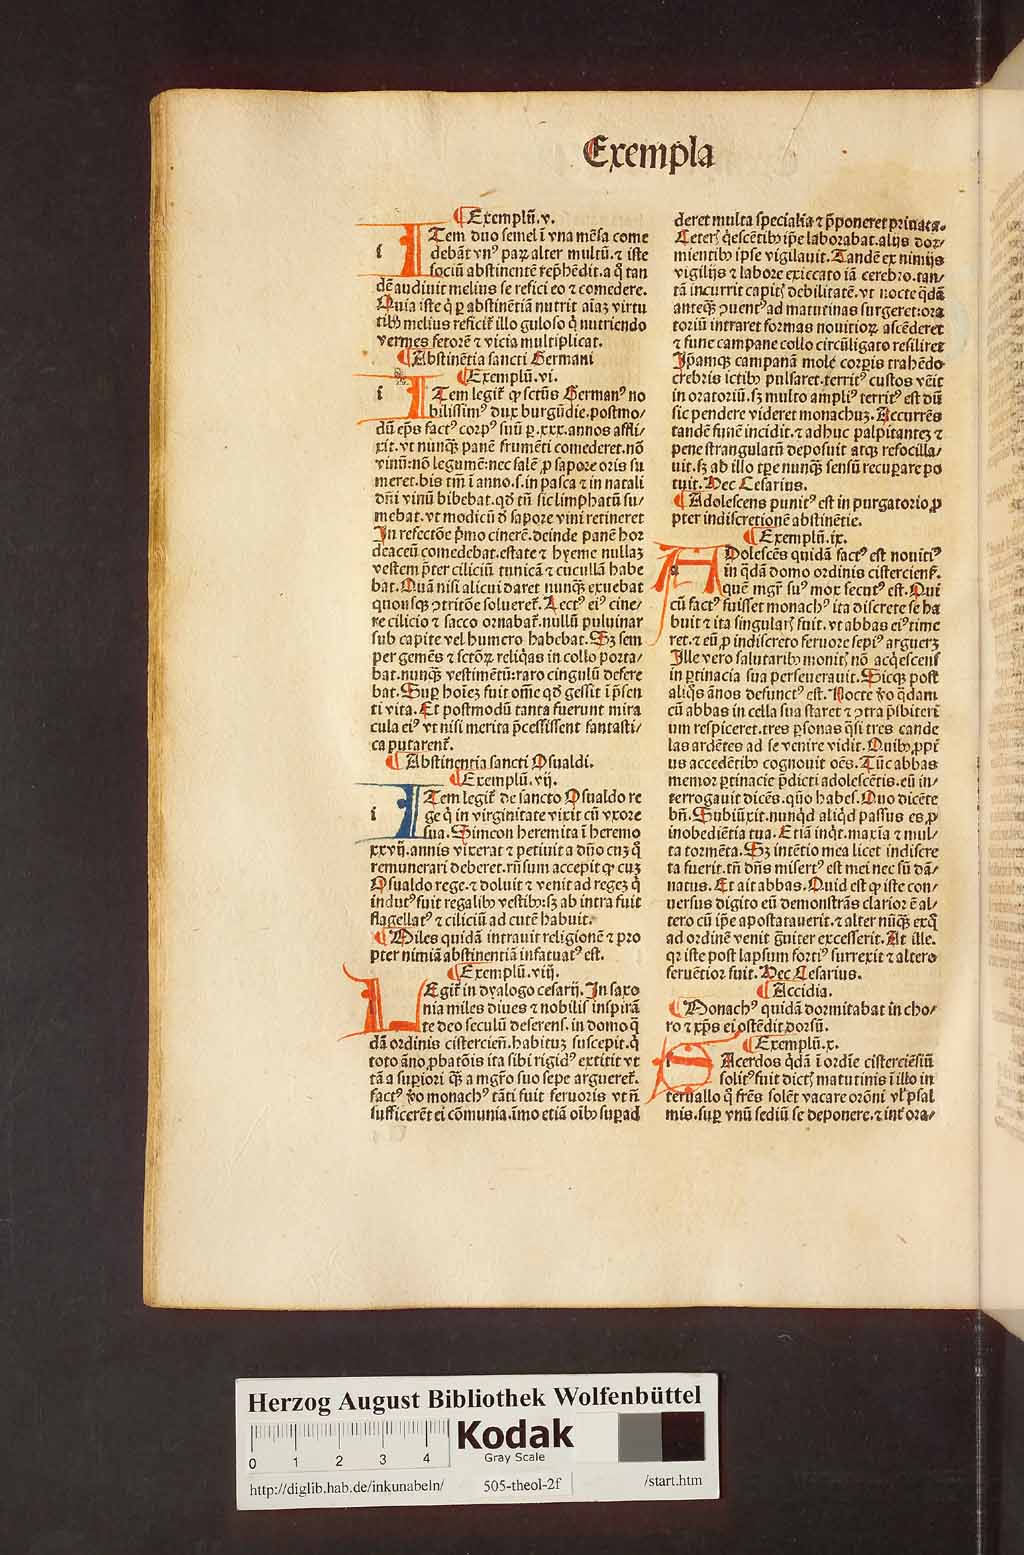 Exempla
¶ Exemplū.v.
ITem duo semel ī vna mēsa come
debāt vnꝰ paꝝ alter multū.⁊ iste
sociū abstinentē rep̄hēdit.a q̄ tan
dē audiuit melius se refici eo ⁊ comedere.
Quia iste q̄ ꝑ abstinētiā nutrit aīaꝫ virtu
tibꝰ melius reficit̄ illo guloso q̄ nutriendo
vermes fetorē ⁊ vicia multiplicat.
¶ Abstinētia sancti Germani
¶ Exemplū.vi.
ITem legit̄ ꝙ sctūs Germanꝰ no
bilissimꝰ dux burgūdie.postmo/
dū ep̄s factꝰ corpꝰ suū ꝑ.xxx.annos affli/
xit.vt nunqꝫ panē frumēti comederet.nō
vinū:nō legumē:nec salē ꝓ sapore oris su
meret.bis tm̄ ī anno.s.in pasca ⁊ in natali
dn̄i vinū bibebat.qd̄ tn̄ sic limphatū su/
mebat.vt modicū d̄ sapore vini retineret
In refectōe p̄mo cinerē.deinde panē hor
deaceū comedebat.estate ⁊ hyeme nullaꝫ
vestem p̄ter ciliciū tunicā ⁊ cucullā habe
bat.Quā nisi alicui daret nunqꝫ exuebat
quousqꝫ ꝯtritōe solueret̄.Lectꝰ eiꝰ cine/
re cilicio ⁊ sacco ornabat̄.nullū puluinar
sub capite vel humero habebat.Sꝫ sem
per gemēs ⁊ sctōꝝ reliqias in collo porta/
bat.nunqꝫ vestimētū:raro cingulū defere
bat.Suꝑ hoīeꝫ fuit om̄e qd̄ gessit ī p̄sen
ti vita.Et postmodū tanta fuerunt mira
cula eiꝰ vt nisi merita p̄cessissent fantasti/
ca putarent̄.
¶ Abstinentia sancti Osualdi.
¶ Exemplū.vij.
ITem legit̄ de sancto Osualdo re
ge q̄ in virginitate vixit cū vxore
sua.Simeon heremita ī heremo
xxvij.annis vixerat ⁊ petiuit a dn̄o cuꝫ q̄
remunerari deberet.rn̄sum accepit ꝙ cuꝫ
Osualdo rege.⁊ doluit ⁊ venit ad regeꝫ q̄
indutꝰ fuit regalibꝰ vestibꝰ:sꝫ ab intra fuit
flagellatꝰ ⁊ ciliciū ad cutē habuit.
¶ Miles quidā intrauit religionē ⁊ pro
pter nimiā abstinentiā infatuatꝰ est.
¶ Exemplū.viij.
LEgit̄ in dyalogo cesarij.In saxo
nia miles diues ⁊ nobilis inspirā
te deo seculū deserens.in domo q̄
dā ordinis cistercien̄.habituꝫ suscepit.q̄
toto āno ꝓbatōis ita sibi rigidꝰ extitit vt
tā a suꝑiori qꝫ a mgr̄o suo sepe argueret̄.
factꝰ v̄o monachꝰ tāti fuit feruoris vt n̄
sufficerēt ei cōmunia.īmo etiā oībꝰ suꝑad
deret multa specialia ⁊ p̄poneret priuata.
Ceteris q̄escētibꝰ ip̄e laborabat.alijs dor/
mientibꝰ ipse vigilauit.Tandē ex nimijs
vigilijs ⁊ labore exiccato iā cerebro.tan/
tā incurrit capitis debilitatē.vt nocte q̄dā
anteqꝫ ꝯuentꝰ ad matutinas surgeret:ora
toriū intraret formas nouitioꝝ ascēderet
⁊ fune campane collo circūligato resiliret
Ip̄amqꝫ campanā mole corꝑis trahēdo
crebris ictibꝰ pulsaret.territꝰ custos vēit
in oratoriū.sꝫ multo ampliꝰ territꝰ est dū
sic pendere videret monachuꝫ.Accurrēs
tandē funē incidit.⁊ adhuc palpitanteꝫ ⁊
pene strangulatū deposuit atqꝫ refocilla/
uit.sꝫ ab illo tꝑe nunqꝫ sensū recuꝑare po
tuit.Hec Cesarius.
¶ Adolescens punitꝰ est in purgatorio ꝓ
pter indiscretionē abstinētie.
¶ Exemplū.ix.
ADolescēs quidā factꝰ est nouitiꝰ
in q̄dā domo ordinis cistercien̄.
quē mgr̄ suꝰ mox secutꝰ est.Qui
cū factꝰ fuisset monachꝰ ita discrete se ha
buit ⁊ ita singularis fuit.vt abbas eiꝰ time
ret.⁊ eū ꝓ indiscreto feruore sepiꝰ argueret
Ille vero salutaribꝰ monitis nō acq̄escens
in ꝑtinacia sua perseuerauit.Sicqꝫ post
aliqs ānos defunctꝰ est.Nocte v̄o q̄dam
cū abbas in cella sua staret ⁊ ꝯtra p̄sbiteri
um respiceret.tres ꝑsonas q̄si tres cande
las ardētes ad se venire vidit.Quibꝰ ꝓpi
us accedētibꝰ cognouit oēs.Tūc abbas
memor ꝑtinacie p̄dicti adolescētis.eū in/
terrogauit dicēs.quō habes.Quo dicēte
bn̄.Subiūxit.nunqd aliqd passus es ꝓ
inobediētia tua.Etiā inqt.maxīa ⁊ mul/
ta tormēta.Sꝫ intētio mea licet indiscre
ta fuerit.tn̄ dn̄s misertꝰ est mei nec sū dā/
natus.Et ait abbas.Quid est ꝙ iste con/
uersus digito eū demonstrās clarior ē al/
tero cū ip̄e apostatauerit.⁊ alter nūqꝫ exq̄
ad ordinē venit grauiter excesserit.At ille.
qr iste post lapsum fortiꝰ surrexit ⁊ altero
feruētior fuit.Hec Cesarius.
¶ Accidia.
¶ Monachꝰ quidā dormitabat in cho/
ro ⁊ xp̄s ei ostēdit dorsū.
¶ Exemplū.x.
SAcerdos q̄dā ī ordīe cisterciēsiū
solitꝰ fuit dictis matutinis ī illo in
teruallo q̄ frēs solēt vacare orōni vl̓ psal
mis.suꝑ vnū sediū se deponere.⁊ int̄ ora/
Herzog August Bibliothek Wolfenbüttel
0 1 2 3 4
Kodak
Gray Scale
http://diglib.hab.de/inkunabeln/ 505-theol-2f /start.htm